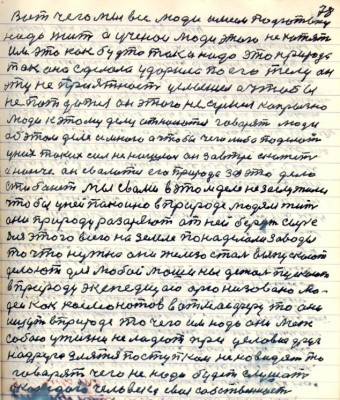 78
Вот чего мы все люди имеем подготовку
надо жит а ученой люди этого не хотят
им это как будто так и надо это природа
так она сделала ударило по его телу он
эту не приятность услышел а что бы
не получит он этого не сумел напрасно
люди к этому делу относится говорят люди
об этом деле много а чтобы чего либо поделают
у них таких сил не нашлися он завтра скажит
а нынче он свалит его природа за это дело
сгибаит мы с вами в этом деле не заслужили
чтобы у ней покойно в природе людям жит
они природу разаряют от ней берут сыре
для этого всего на земле понаделали заводы
то что нужно они железо стал выпускают
делоют для любой машины детал пускают
в природу экспедицию организовано лю-
дей как космонотов в атмасферу то они
ищут в природе то чего им надо они меж
собою у жизни не ладют при условие друг
на друга злятся поступкам ненавидят то
говорят чего не надо будет слушат
у каждого человека своя собственност